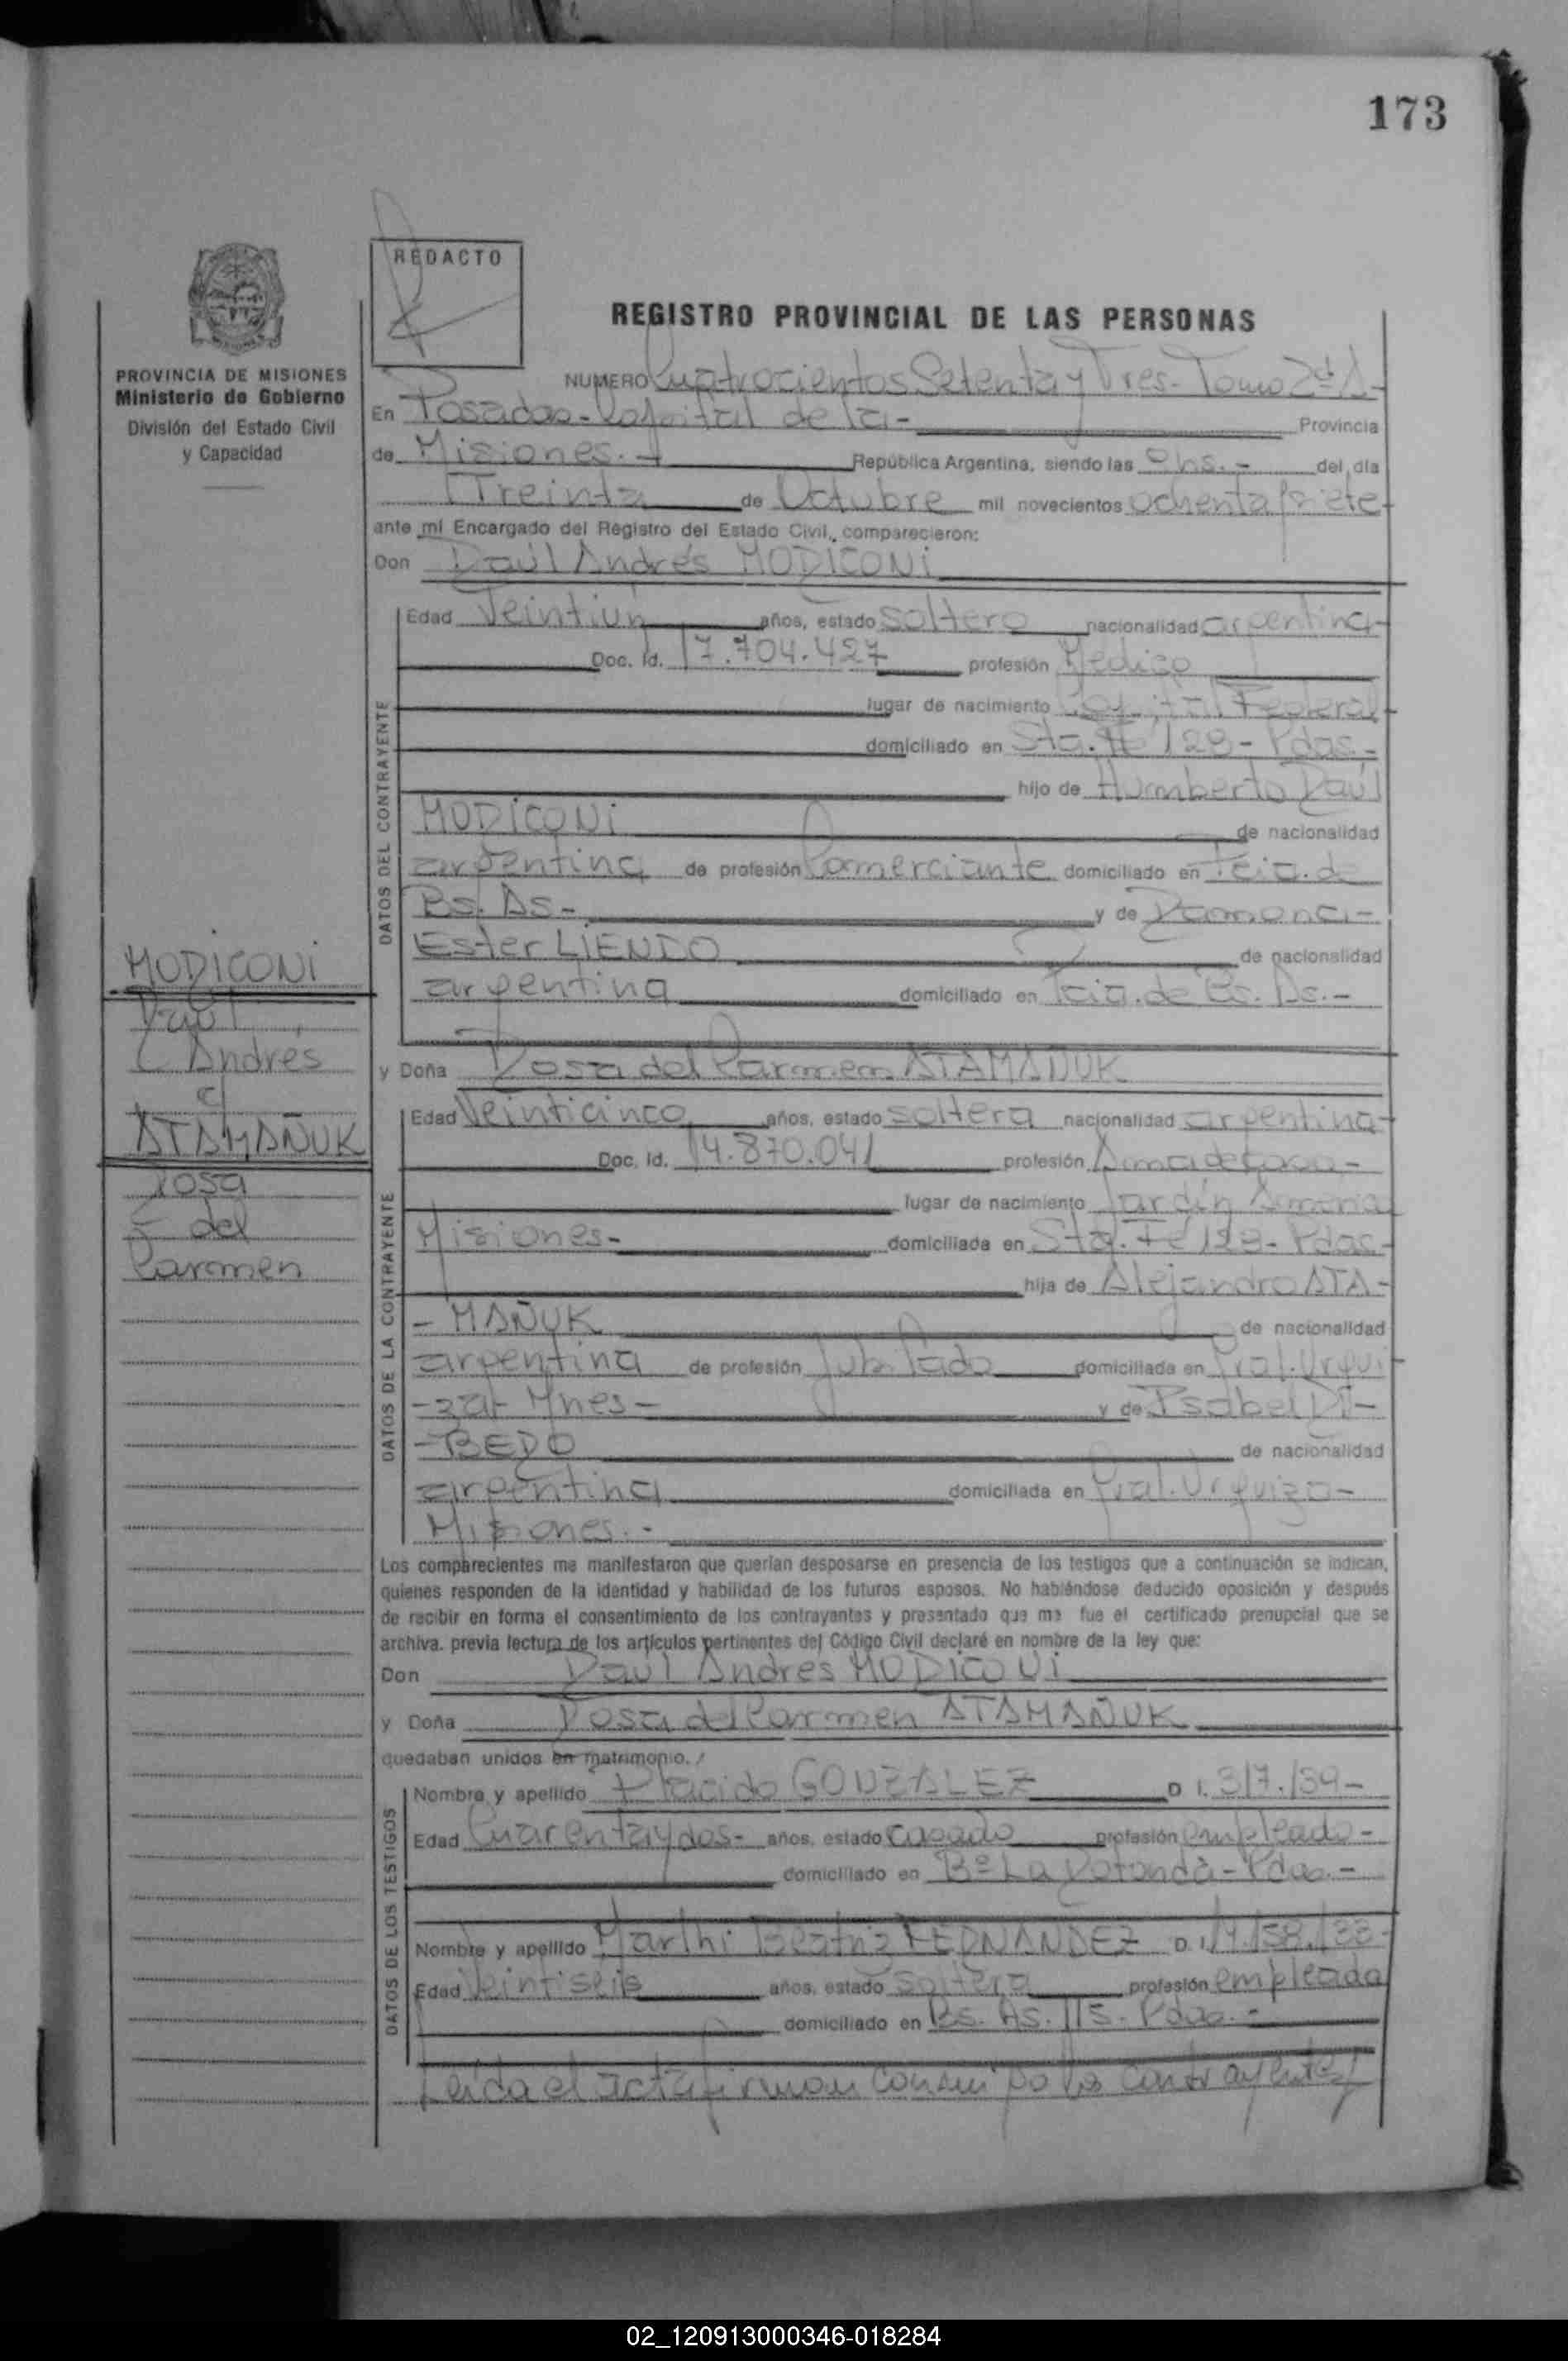 173
REDACTO
REGISTRO PROVINCIAL DE LAS PERSONAS
PROVINCIA DE MISIONES
Ministerio de Gobierno
División del Estado Civil
y Capacidad
NUMERO Cuatrocientos Setenta y Tres - Tomo 2do A.-
En Posadas - Capital de la - Provincia
de Misiones.- República Argentina, siendo las 9 hs. - del día
Treinta de Octubre mil novecientos ochenta y siete
ante mí Encargado del Registro del Estado Civil, comparecieron:
Don Raúl Andrés MODICONi
Edad Veintiún años, estado soltero nacionalidad argentina
Doc. Id. 17.704.427 profesión Médico
lugar de nacimiento Capital Federal
domiciliado en Sta. Fé 128 - Pdas. -
hijo de Humberto Raúl
MODICONi de nacionalidad
argentina de profesión Comerciante domiciliado en Pcia. de
Bs. As - y de Ramona -
Ester LIENDO de nacionalidad
argentina domiciliado en Pcia. de Bs. As. -
y Doña Rosa del Carmen ATAMAÑUK
Edad Veinticinco años, estado soltera nacionalidad argentina
Doc. Id. 14.870.041 profesión Ama de Casa -
lugar de nacimiento Jardín America
Misiones - domiciliada en Sta. Fé 128 - Pdas -
hija de Alejandro ATA -
- MAÑUK de nacionalidad
argentina de profesión Jubilado domiciliada en Gral. Urqui
- za - Mnes - y de Isabel RI -
- BEDO de nacionalidad
argentina domiciliada en Gral. Urquiza -
Misiones. -
Los comparecientes me manifestaron que querían desposarse en presencia de los testigos que a continuación se indican,
quienes responden de la identidad y habilidad de los futuros esposos. No habiéndose deducido oposición y después
de recibir en forma el consentimiento de los contrayentes y presentado que me fue el certificado prenupcial que se
archiva. previa lectura de los artículos pertinentes del Código Civil declaré en nombre de la ley que:
Don Raúl Andrés MODICONi
y Doña Rosa del Carmen ATAMAÑUK
quedaban unidos en matrimonio.
Nombre y apellido Placido GONZALEZ D I. 317./39 -
Edad Cuarenta y dos - años, estado casado profesión empleado -
domiciliado en Bº La Rotonda - Pdas. -
Nombre y apellido Beatriz FERNANDEZ D I.
Edad Veintiséis años, estado soltera profesión empleada
domiciliado en Bs. As. - Pdas. -
Leida el acta firman conmigo los contrayentes
DATOS DEL CONTRAYENTE
DATOS DE LA CONTRAYENTE
DATOS DE LOS TESTIGOS
MODICONi
Raúl
Andrés
c/
ATAMAÑUK
Rosa
del
Carmen
02_120913000346-018284